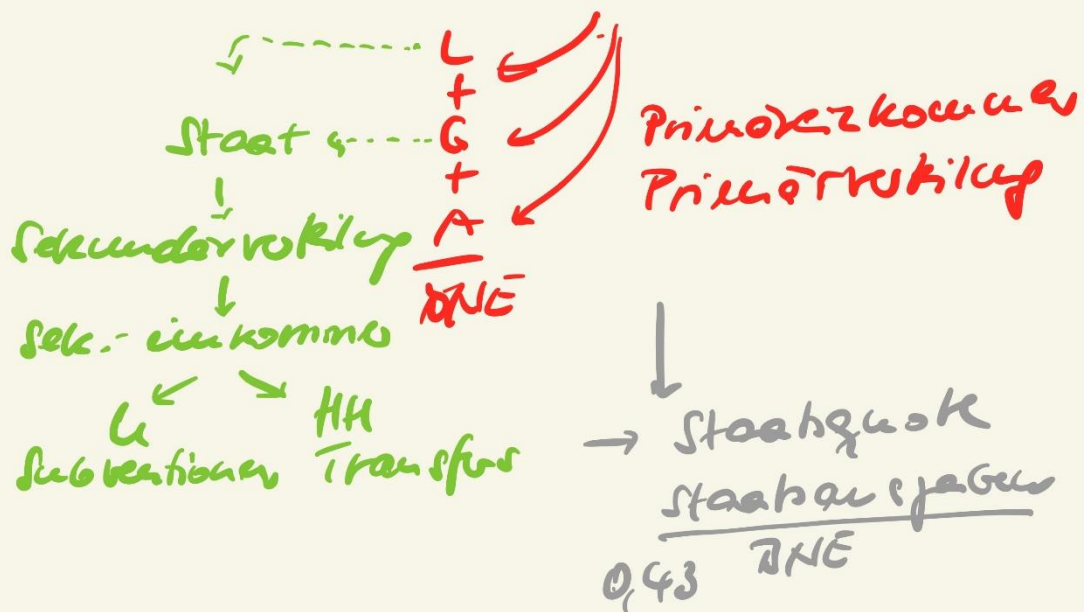 L
+
Staat G
+
A
BNE
Primäreinkommen
Primärverteilung
Sekundärverteilung
Sek.-einkommen
U HH
Subventionen Transfers
Staatsquote
Staatsausgaben
BNE
0,43